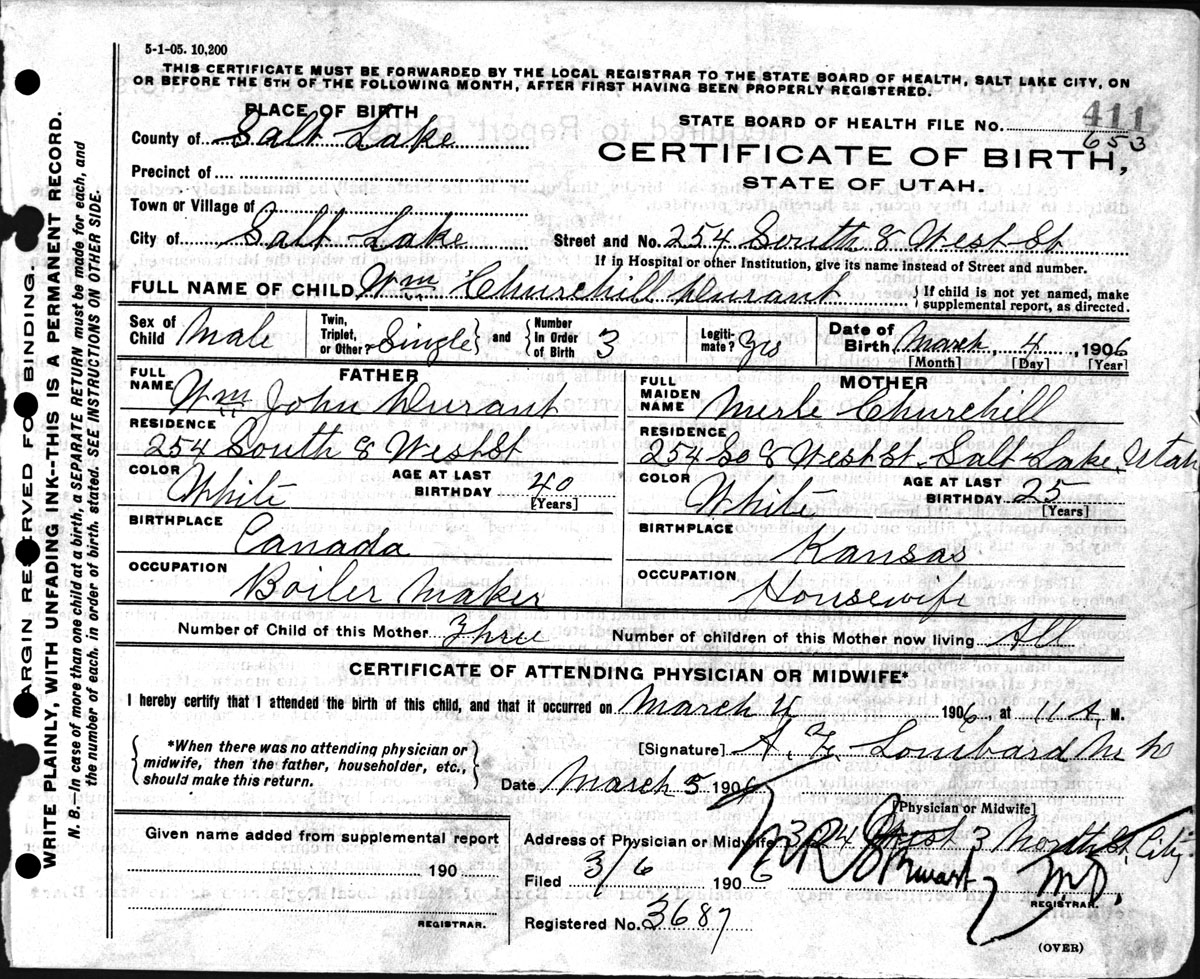 5-1-05. 10,200
THIS CERTIFICATE MUST BE FORWARDED BY THE LOCAL REGISTRAR TO THE STATE BOARD OF HEALTH, SALT LAKE CITY, ON
OR BEFORE THE 5TH OF THE FOLLOWING MONTH, AFTER FIRST HAVING BEEN PROPERLY REGISTERED.
PLACE OF BIRTH
County of Salt Lake
Precinct of
Town or Village of
City of Salt Lake
STATE BOARD OF HEALTH FILE No. 411
653
CERTIFICATE OF BIRTH,
STATE OF UTAH.
Street and No. 254 South 8 West St
If in Hospital or other Institution, give its name instead of Street and number.
FULL NAME OF CHILD Wm Churchill Durant } If child is not yet named, make supplemental report, as directed.
Sex of Child Male Twin, Triplet, or Other? Single } and { Number In Order of Birth 3 Legiti-mate? Date of Birth, March 4, 1906
[Month] [Day] [Year]
FATHER
FULL NAME Wm John Durant
RESIDENCE
254 South 8 West St
COLOR White AGE AT LAST BIRTHDAY 40
[Years]
BIRTHPLACE
Canada
OCCUPATION
Boiler Maker
MOTHER
FULL MAIDEN NAME Merle Churchill
RESIDENCE
254 So 8 West St. Salt Lake, Utah
COLOR White AGE AT LAST BIRTHDAY 25
[Years]
BIRTHPLACE
Kansas
OCCUPATION
Housewife
Number of Child of this Mother Three Number of children of this Mother now living All
CERTIFICATE OF ATTENDING PHYSICIAN OR MIDWIFE*
I hereby certify that I attended the birth of this child, and that it occurred on March 4 1906, at 11 A, M.
{ *When there was no attending physician or
midwife, then the father, householder, etc.,
should make this return. }
[Signature] A. Z. Lombard M D
Date March 5 1906
[Physician or Midwife]
Given name added from supplemental report
190
REGISTRAR.
Address of Physician or Midwife 324 West 3 North St City
Filed 3/6 1906 M.D.
REGISTRAR.
Registered No. 3687
(OVER)
MARGIN RESERVED FOR BINDING.
WRITE PLAINLY, WITH UNFADING INK--THIS IS A PERMANENT RECORD.
N. B.—In case of more than one child at a birth, a SEPARATE RETURN must be made for each, and
the number of each, in order of birth, stated. SEE INSTRUCTIONS ON OTHER SIDE.